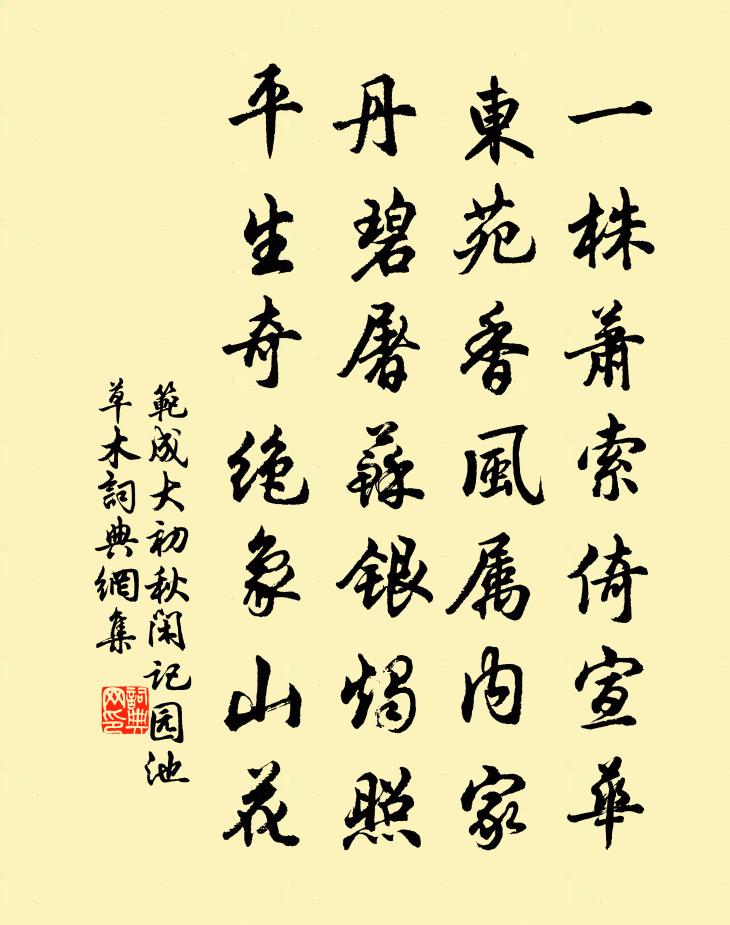 一株蕭索倚宣華
東苑香風属内家
丹碧屠蘇銀燭照
平生奇绝象山花
範成大初秋閑記园池
草木詞典網集
詞典网印